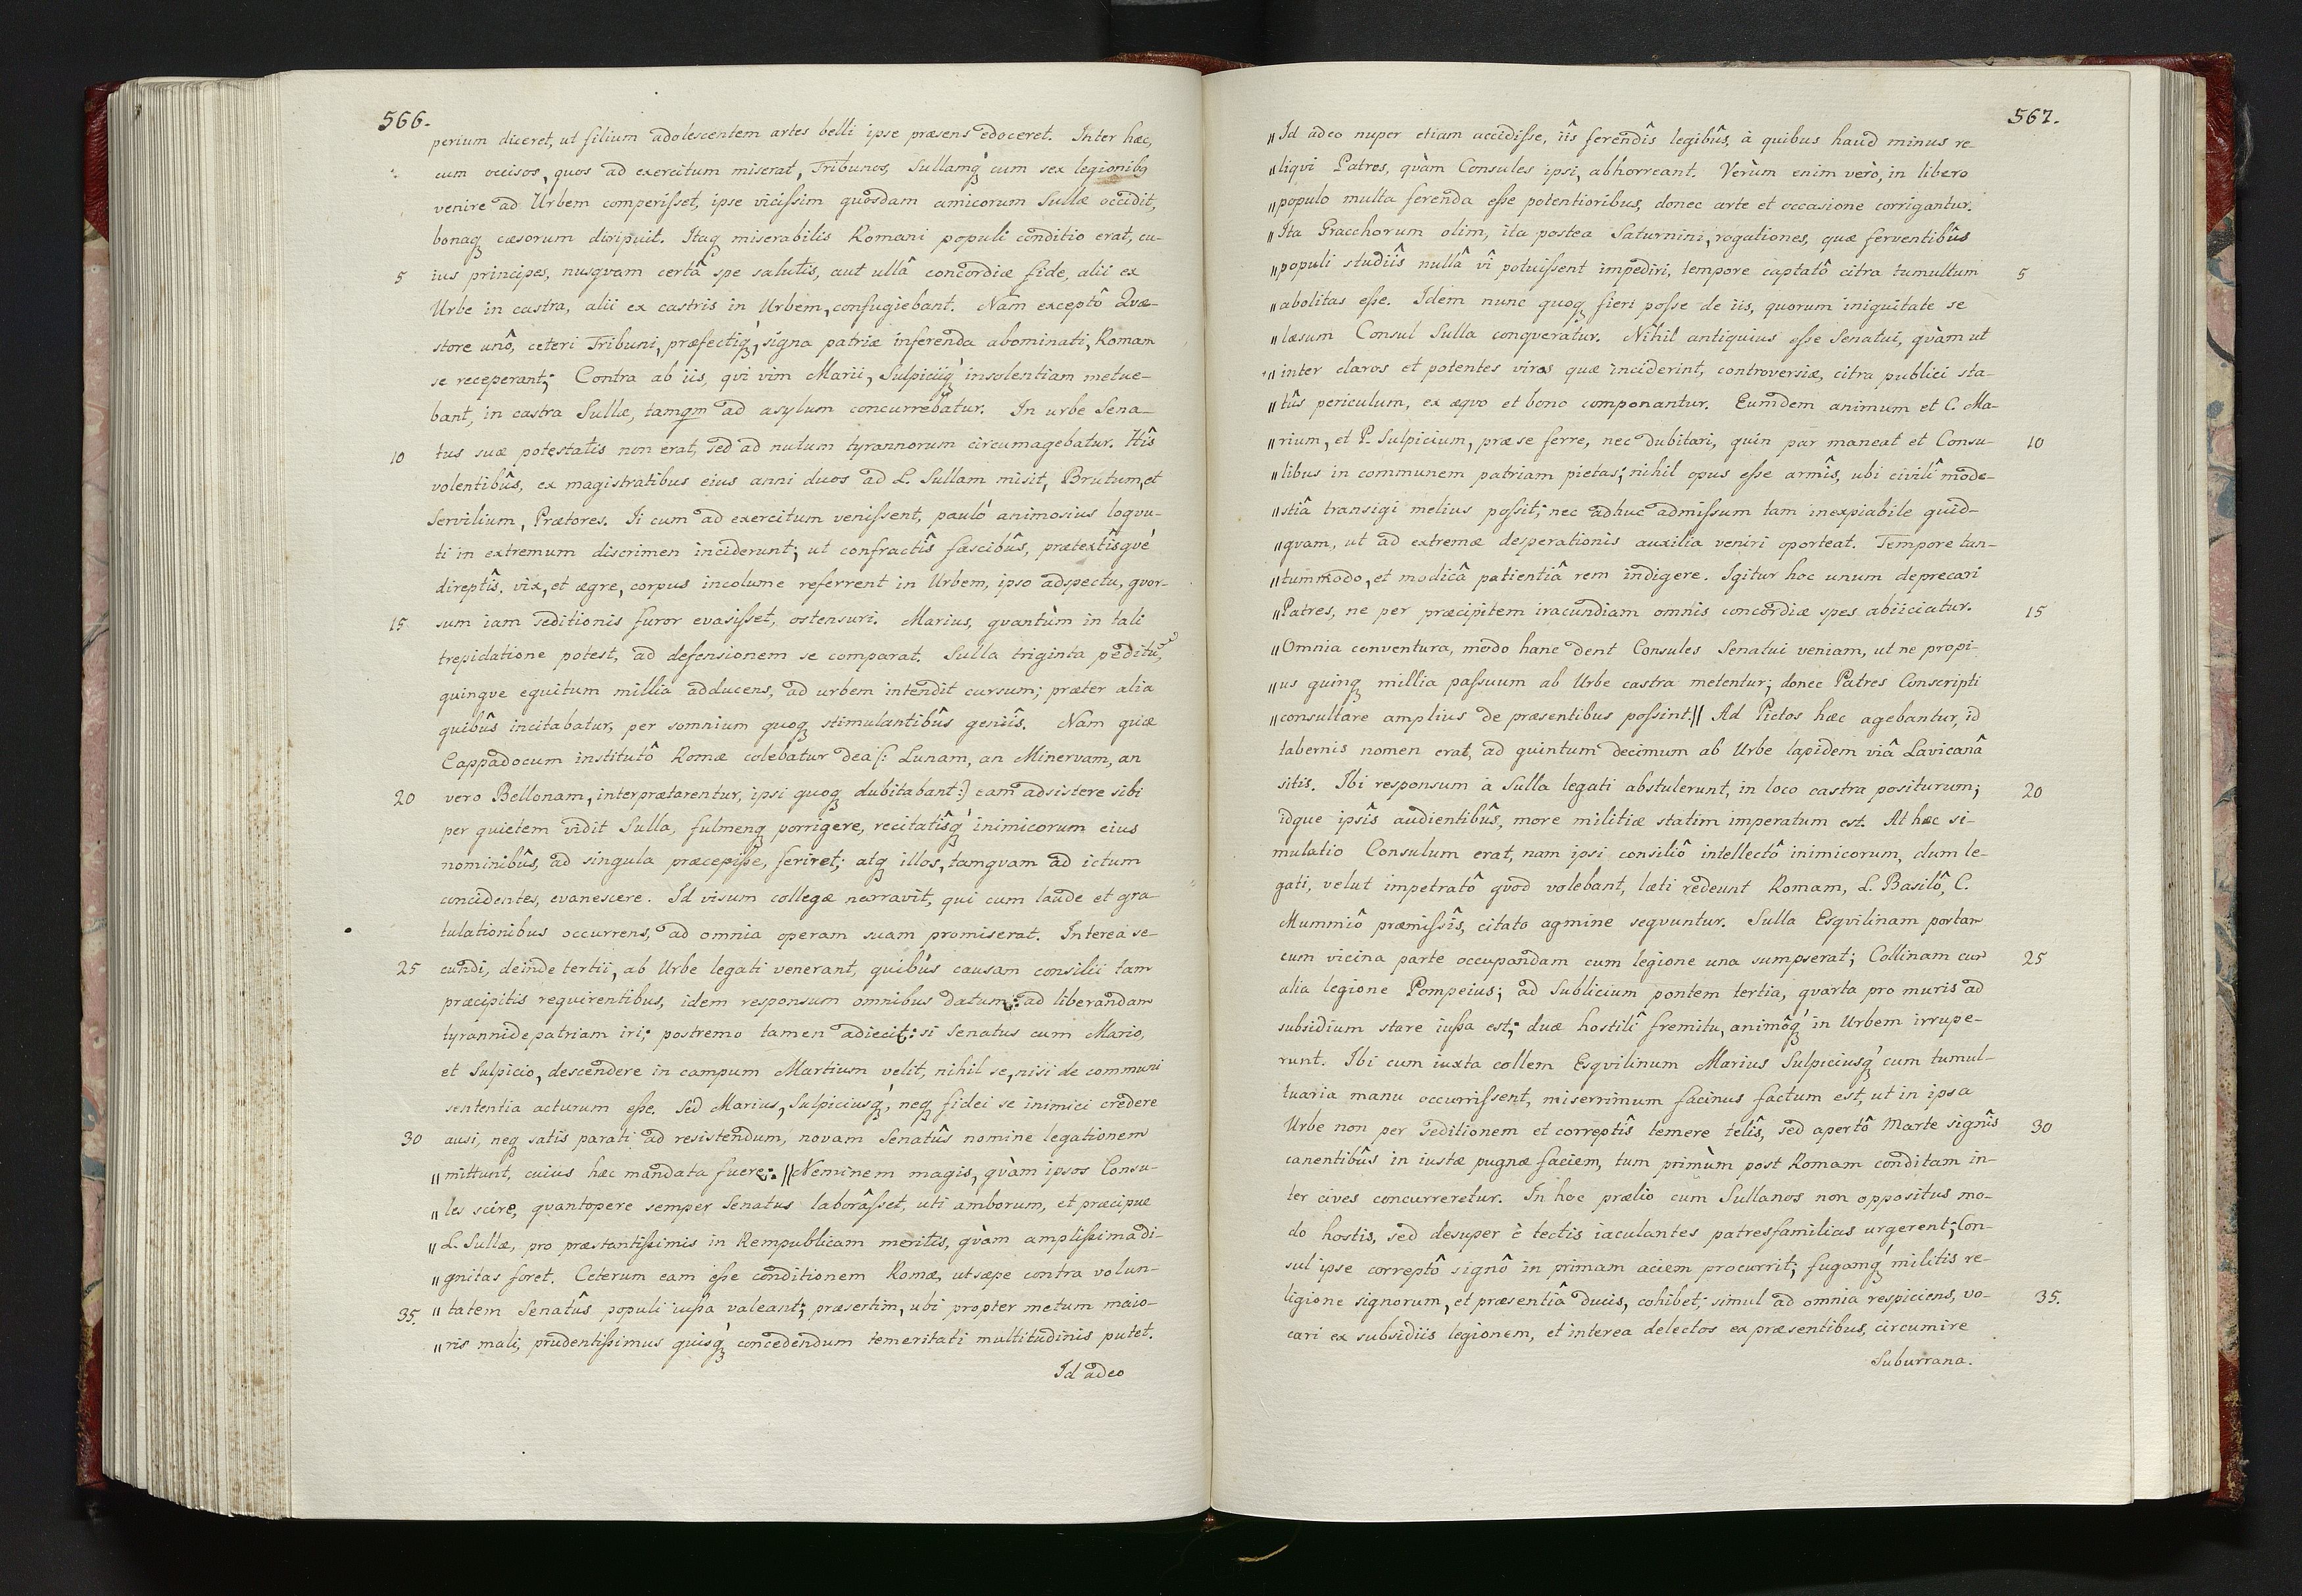 566.
perium diceret, ut filium adolescentem artes belli ipse præsens edoceret. Inter hæc,
cum occisos, quos ad exercitum miserat, Tribunos, Sullamq́ꝫ cum sex legionibꝫ
venire ad Urbem comperiſset, ipse viciſsim quosdam amicorum Sullæ occidit,
bonaqꝫ cæsorum diripuit. Itaqꝫ miserabilis Romani populi conditio erat, cu-
5 ius principes, nusqvam certâ spe salutis, aut ullâ concordiæ fide, alii ex
Urbe in castra, alii ex castris in Urbem, confugiebant. Nam exceptô Qvæ-
store unô, ceteri Tribuni, præfectiq́ꝫ, signa patriæ inferenda abominati, Romam
se receperant; Contra ab iis, qvi vim Marii, Sulpiciiq́ꝫ insolentiam metue-
bant, in castra Sullæ, tamqm ad asylum concurrebatur. In urbe Sena-
10 tus suæ potestatis non erat, sed ad nutum tyrannorum circumagebatur. Hîs
volentibûs, ex magistratibus eius anni duos ad L. Sullam misit, Brutum, et
Servilium, Prætores. Ii cum ad exercitum veniſsent, pauló animosius loqvu-
ti in extremum discrimen inciderunt; ut confractîs fascibûs, prætextîsqvé
direptîs, vix, et ægre, corpus incolume referrent in Urbem, ipso adspectu, qvor-
15 sum iam seditionis furor evasiſset, ostensuri. Marius, qvantùm in tali
trepidatione potest, ad defensionem se comparat. Sulla triginta peditũ,
quinqve equitum millia adducens, ad urbem intendit cursum; præter alia
quibûs incitabatur, per somnium quoqꝫ stimulantibûs geniîs. Nam quæ
Cappadocum institutô Romæ colebatur dea (: Lunam, an Minervam, an
20 vero Bellonam, interprætarentur, ipsi quoqꝫ dubitabant :) eam adsistere sibi
per quietem vidit Sulla, fulmenqꝫ porrigere, recitatîsq́ꝫ inimicorum eius
nominibûs, ad singula præcepiſse, feriret; atqꝫ illos, tamqvam ad ictum
concidentes, evanescere. Id visum collegæ narravit, qui cum laude et gra-
tulationibus occurrens, ad omnia operam suam promiserat. Interea se-
25 cundi, deinde tertii, ab Urbe legati venerant, quibus causam consilii tam
præcipitis requirentibus, idem responsum omnibus datum: ad liberandam
tyrannide patriam iri; postremo tamen adiecit: si Senatus cum Mario,
et Sulpicio, descendere in campum Martium velit, nihil se, nisi de communi
sententia acturum eſse. Sed Marius, Sulpiciusq́ꝫ, neqꝫ fidei se inimici credere
30 ausi, neqꝫ satis parati ad resistendum, novam Senatûs nomine legationem
〃mittunt, cuius hæc mandata fuere: //Neminem magis, qvàm ipsos Consu-
〃les scire, qvantopere semper Senatus laborâſset, uti amborum, et præcipue
〃L. Sullæ, pro præstantiſsimis in Rempublicam meritis, qvàm ampliſsima di-
〃gnitas foret. Ceterum eam eſse conditionem Romæ, ut sæpe contra volun-
35. 〃tatem Senatûs populi iuſsa valeant; præsertim, ubi propter metum maio-
〃ris mali, prudentiſsimus quisq́ꝫ concedendum temeritati multitudinis putet.
Id adeo
567.
〃Id adeo nuper etiam accidiſse, iîs ferendîs legibûs, à quibus haud minus re-
〃liqvi Patres, qvàm Consules ipsi, abhorreant. Verùm enim verò, in libero
〃populo multa ferenda eſse potentioribus, donec arte et occasione corrigantur.
〃Ita Gracchorum olim, ita postea Saturnini, rogationes, quæ ferventibûs
〃populi studiîs nullâ vî potuiſsent impediri, tempore captatô citra tumultum 5
〃abolitas eſse. Idem nunc quoqꝫ fieri poſse de iis, quorum iniquitate se
〃læsum Consul Sulla conqveratur. Nihil antiquius eſse Senatui, qvàm ut
〃inter claros et potentes viros quæ inciderint, controversiæ, citra publici sta-
〃tûs periculum, ex æqvo et bono componantur. Eumdem animum et C. Ma-
〃rium, et P. Sulpicium, præ se ferre, nec dubitari, quin par maneat et Consu- 10
〃libus in communem patriam pietas; nihil opus eſse armîs, ubi civilî mode-
〃stiâ transigi melius poſsit; nec adhuc admiſsum tam inexpiabile quid-
〃qvam, ut ad extremæ desperationis auxilia veniri oporteat. Tempore tan-
〃tummodo, et modicâ patientiâ rem indigere. Igitur hoc unum deprecari
〃Patres, ne per præcipitem iracundiam omnis concordiæ spes abiiciatur. 15
〃Omnia conventura, modo hanc dent Consules Senatui veniam, ut ne propi-
〃us quinqꝫ millia paſsuum ab Urbe castra metentur; donec Patres Conscripti
〃consultare amplius de præsentibus poſsint.// Ad Pictos hæc agebantur, id
tabernis nomen erat, ad quintum decimum ab Urbe lapidem viâ Lavicanâ
sitis. Ibi responsum à Sulla legati abstulerunt, in loco castra positurum; 20
idque ipsîs audientibûs, more militiæ statim imperatum est. At hæc si-
mulatio Consulum erat, nam ipsi consiliô intellectô inimicorum, dum le-
gati, velut impetratô qvod volebant, læti redeunt Romam, L. Basilô, C.
Mummiô præmiſsîs, citato agmine seqvuntur. Sulla Esqvilinam portam
cum vicina parte occupandam cum legione una sumpserat; Collinam cum 25
alia legione Pompeius; ad Sublicium pontem tertia, qvarta pro muris ad
subsidium stare iuſsa est; duæ hostilî fremitu, animôq́ꝫ in Urbem irrupe-
runt. Ibi cum iuxta collem Esqvilinum Marius Sulpiciusq́ꝫ cum tumul-
tuaria manu occurriſsent, miserrimum facinus factum est, ut in ipsa
Urbe non per seditionem et correptîs temere telîs, sed apertô Marte signîs 30
canentibûs in iustæ pugnæ faciem, tum primùm post Romam conditam in-
ter cives concurreretur. In hoc prælio cum Sullanos non oppositus mo-
do hostis, sed desuper è tectis iaculantes patresfamilias urgerent; Con-
sul ipse correptô signô in primam aciem procurrit; fugamq́ꝫ militis re-
ligione signorum, et præsentiâ ducis, cohibet; simul ad omnia respiciens, vo- 35.
cari ex subsidiis legionem, et interea delectos ex præsentibus, circumire
Suburrana.